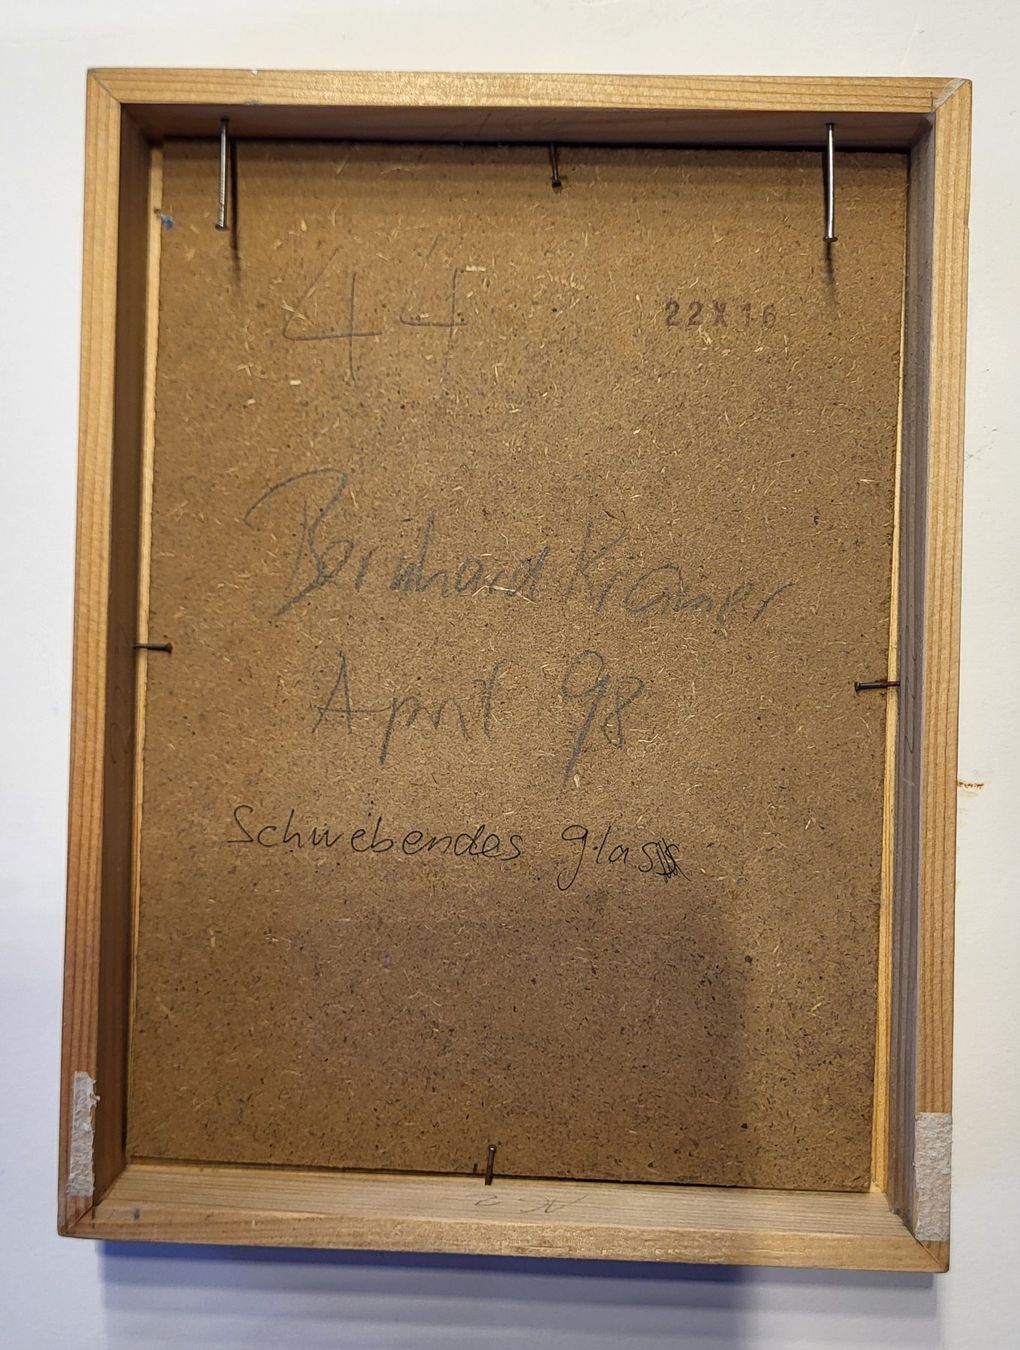 44
22X16
Bernhard Kramer
April 98
Schwebendes glas